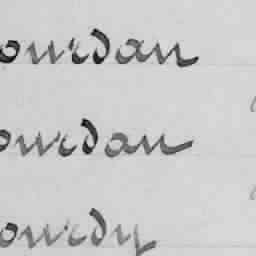 ourdan
ourdan
ourdy